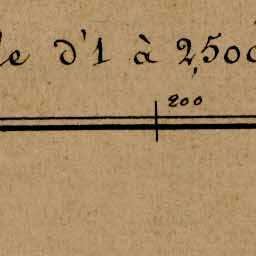 le d'1 à 2,500
200